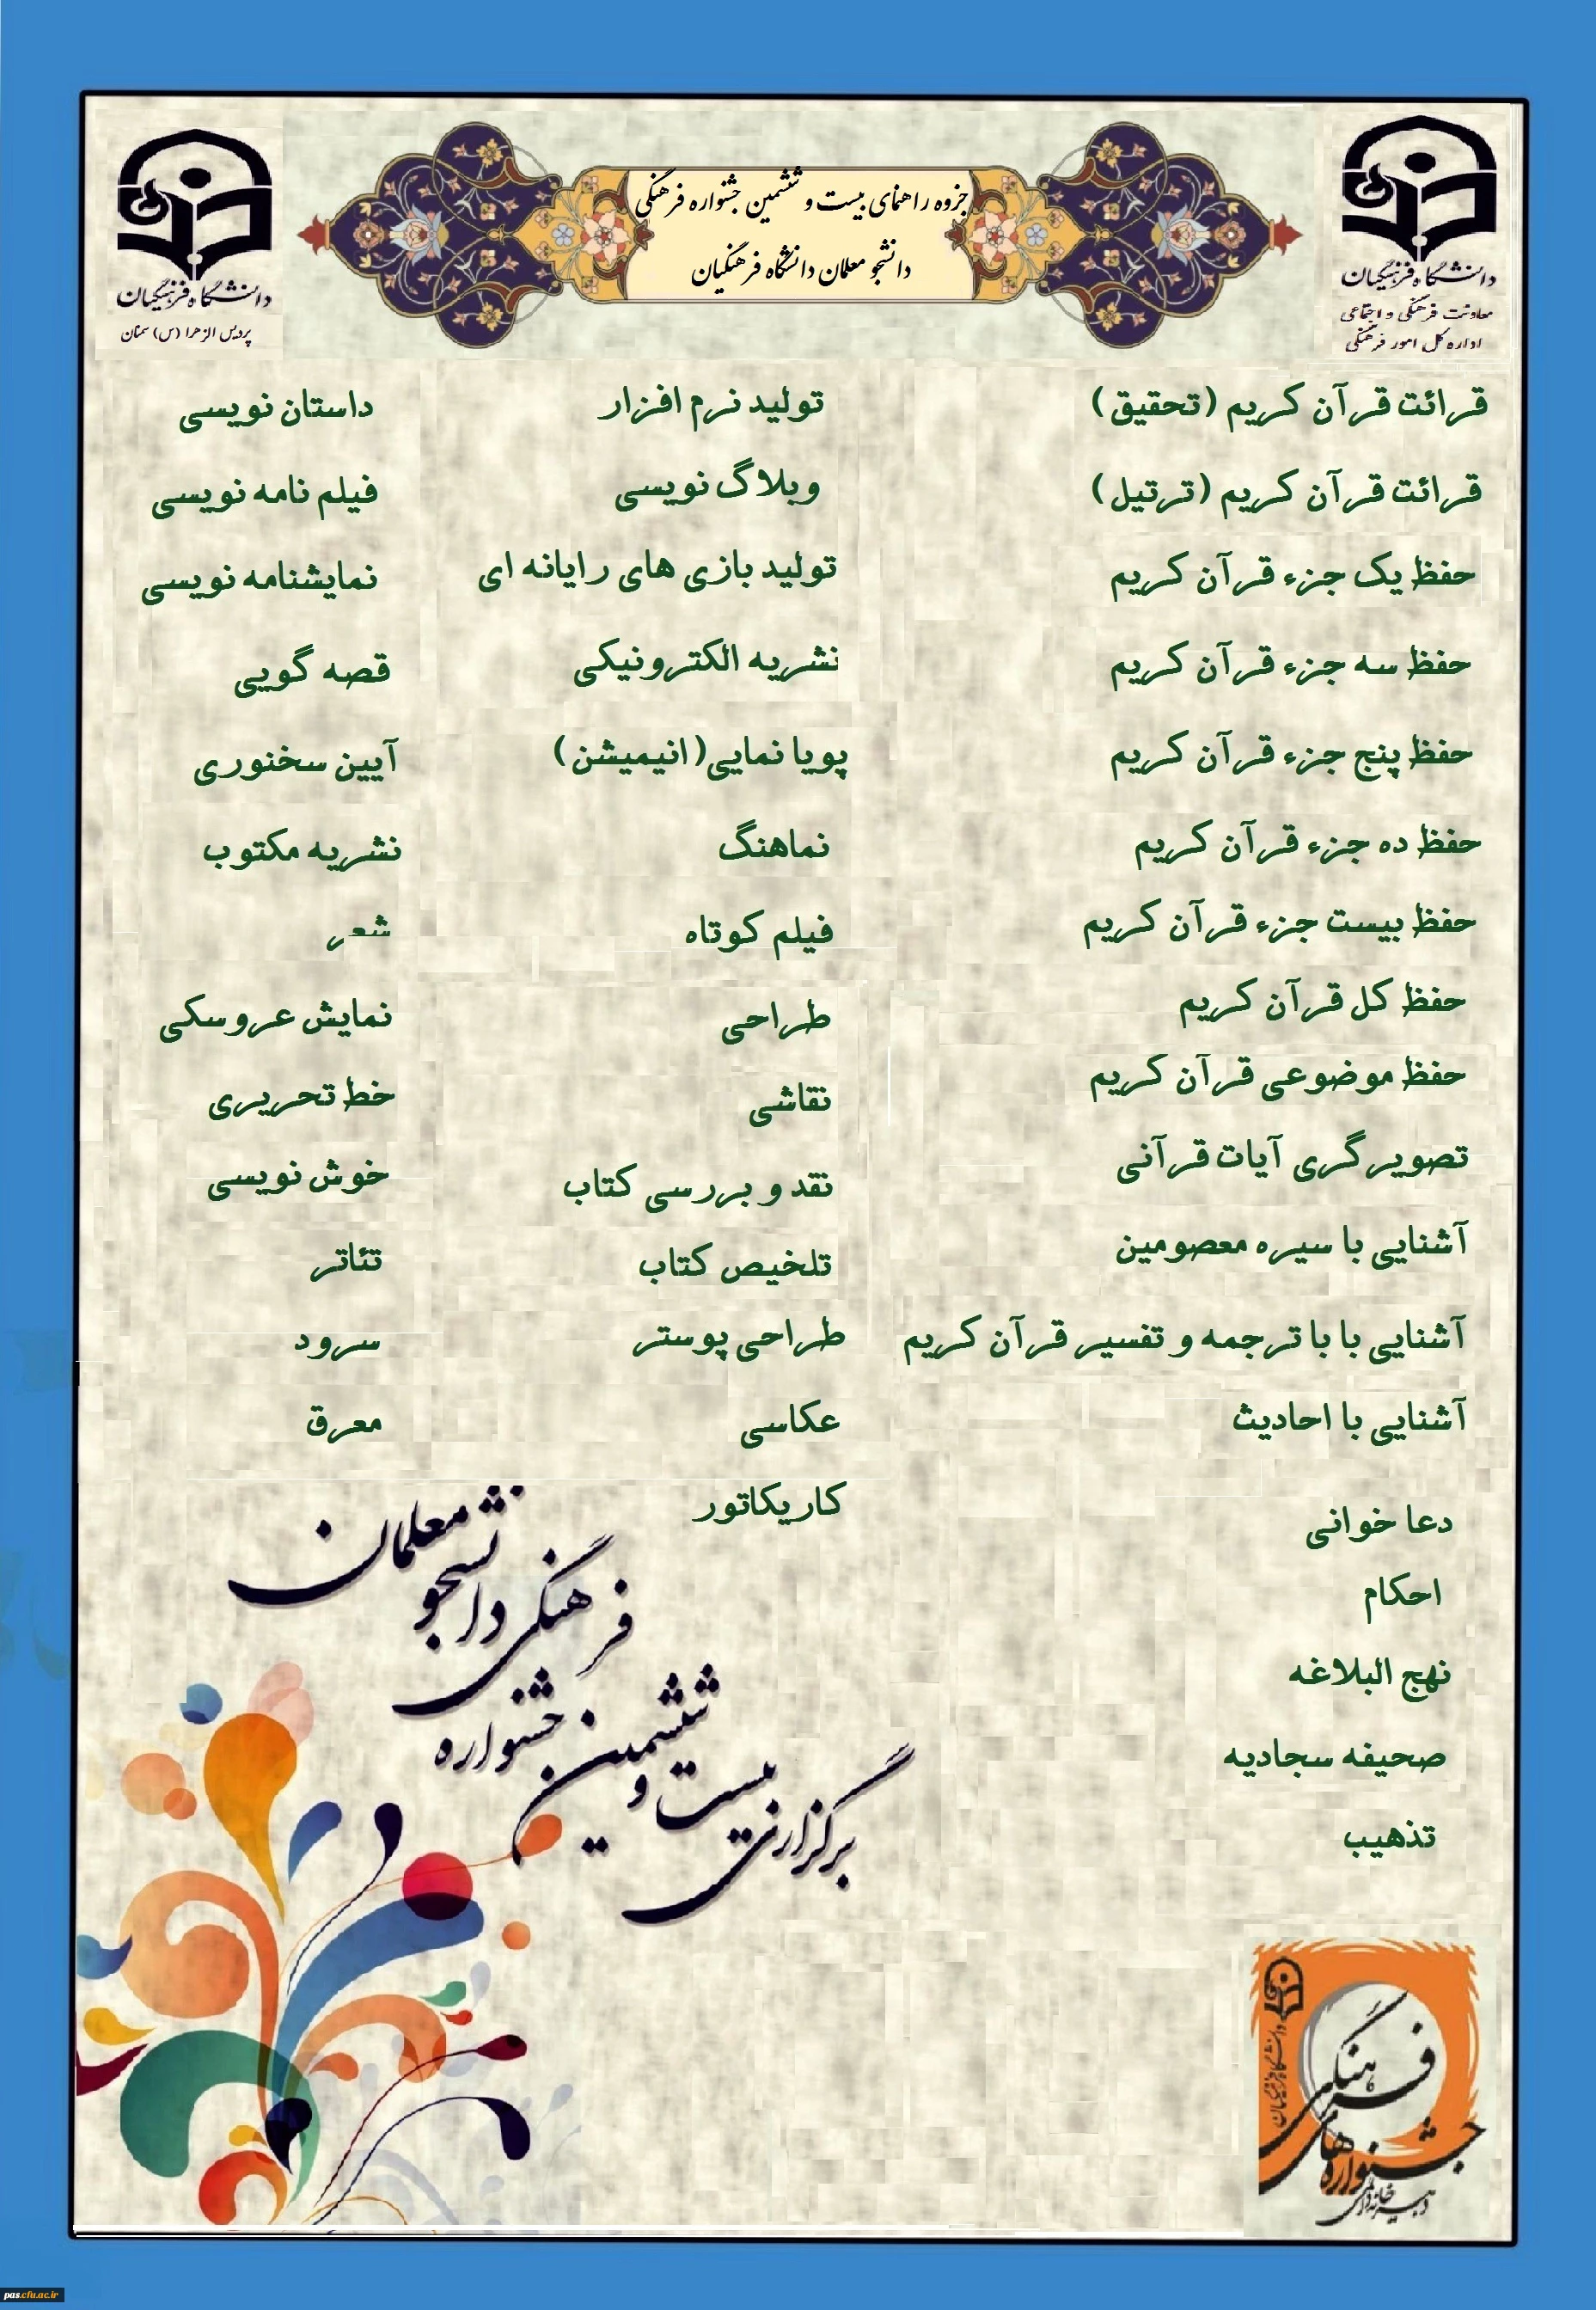 جزوه راهنمای بیست و ششمین جشنواره فرهنگی
دانشجو معلمان دانشگاه فرهنگیان
دانشگاه فرهنگیان
معاونت فرهنگی و اجتماعی
اداره کل امور فرهنگی
دانشگاه فرهنگیان
پردیس الزهرا (س) سمنان
قرائت قرآن کریم (تحقیق)
قرائت قرآن کریم (ترتیل)
حفظ یک جزء قرآن کریم
حفظ سه جزء قرآن کریم
حفظ پنج جزء قرآن کریم
حفظ ده جزء قرآن کریم
حفظ بیست جزء قرآن کریم
حفظ کل قرآن کریم
حفظ موضوعی قرآن کریم
تصویرگری آیات قرآنی
آشنایی با سیره معصومین
آشنایی با با ترجمه و تفسیر قرآن کریم
آشنایی با احادیث
دعا خوانی
احکام
نهج البلاغه
صحیفه سجادیه
تذهیب
تولید نرم افزار
وبلاگ نویسی
تولید بازی های رایانه ای
نشریه الکترونیکی
پویا نمایی( انیمیشن )
نماهنگ
فیلم کوتاه
طراحی
نقاشی
نقد و بررسی کتاب
تلخیص کتاب
طراحی پوستر
عکاسی
کاریکاتور
داستان نویسی
فیلم نامه نویسی
نمایشنامه نویسی
قصه گویی
آیین سخنوری
نشریه مکتوب
شعر
نمایش عروسکی
خط تحریری
خوش نویسی
تئاتر
سرود
معرق
برگزاری بیست و ششمین جشنواره
فرهنگی دانشجو معلمان
دانشگاه فرهنگیان
دبیرخانه دائمی
جشنواره های
فرهنگی
pas.cfu.ac.ir